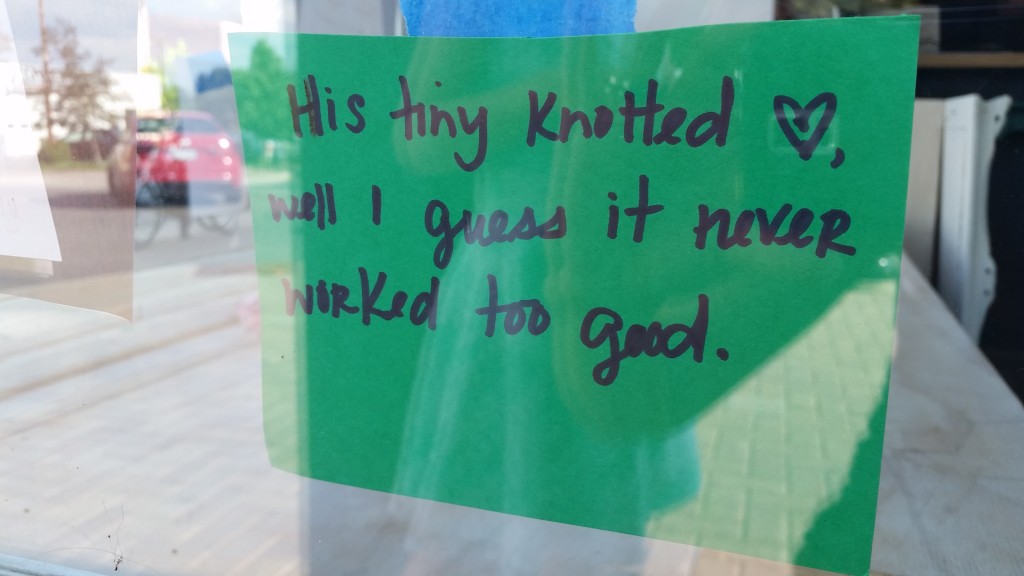 His tiny Knotted ♡,
well I guess it never
worked too good.